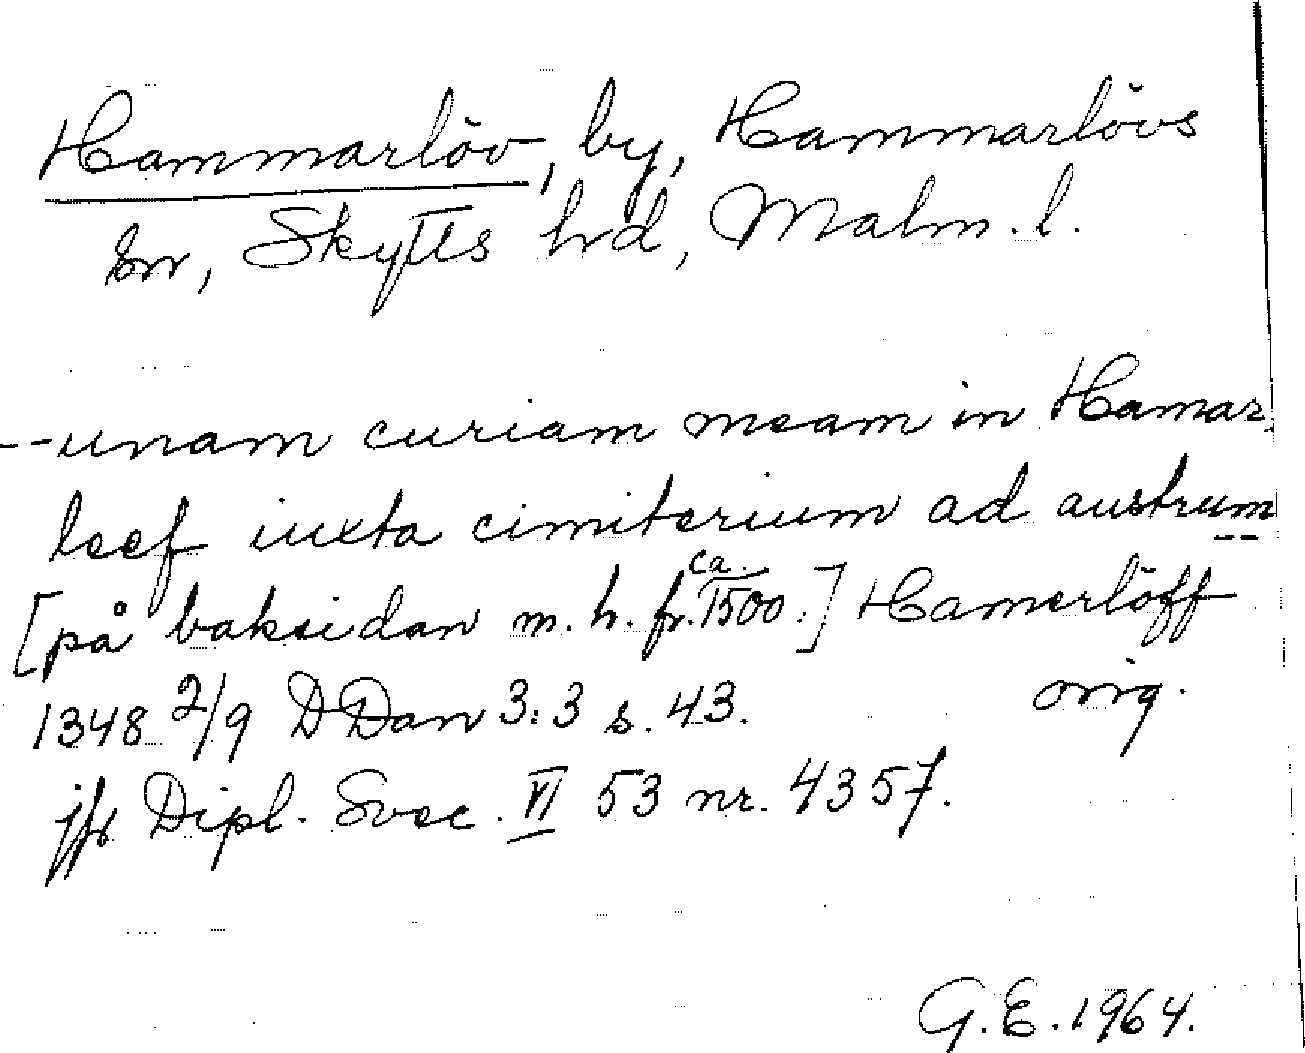 Hammarlöv, by, Hammarlövs
sn, Skytts hd, Malm. l.
-- unam curiam meam in Hamar
leef iuxta cimiterium ad austrum
--
[på baksidan m. h. fr. ca. 1500.] Hamerlöff
1348 2/9 DDan 3:3 s. 43. orig.
jfr Dipl. Svec. VI 53 nr. 4357.
G. E. 1964.